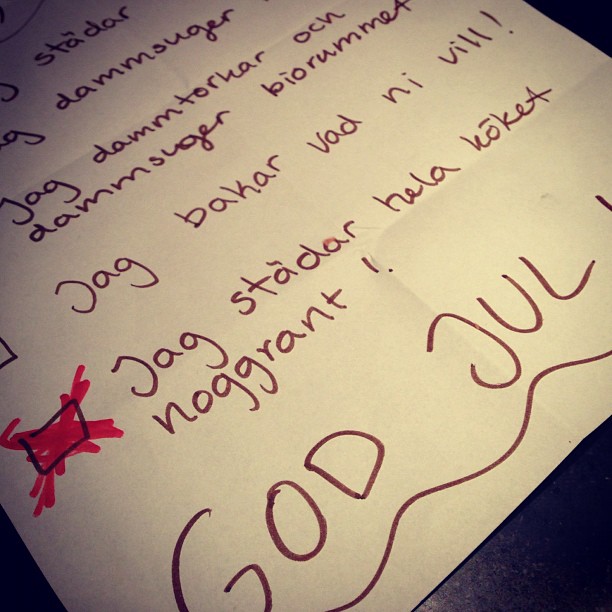 städar
dammsuger
Jag dammtorkar och
dammsuger biorummet
Jag bakar vad ni vill!
Jag städar hela köket
noggrant!
GOD JUL